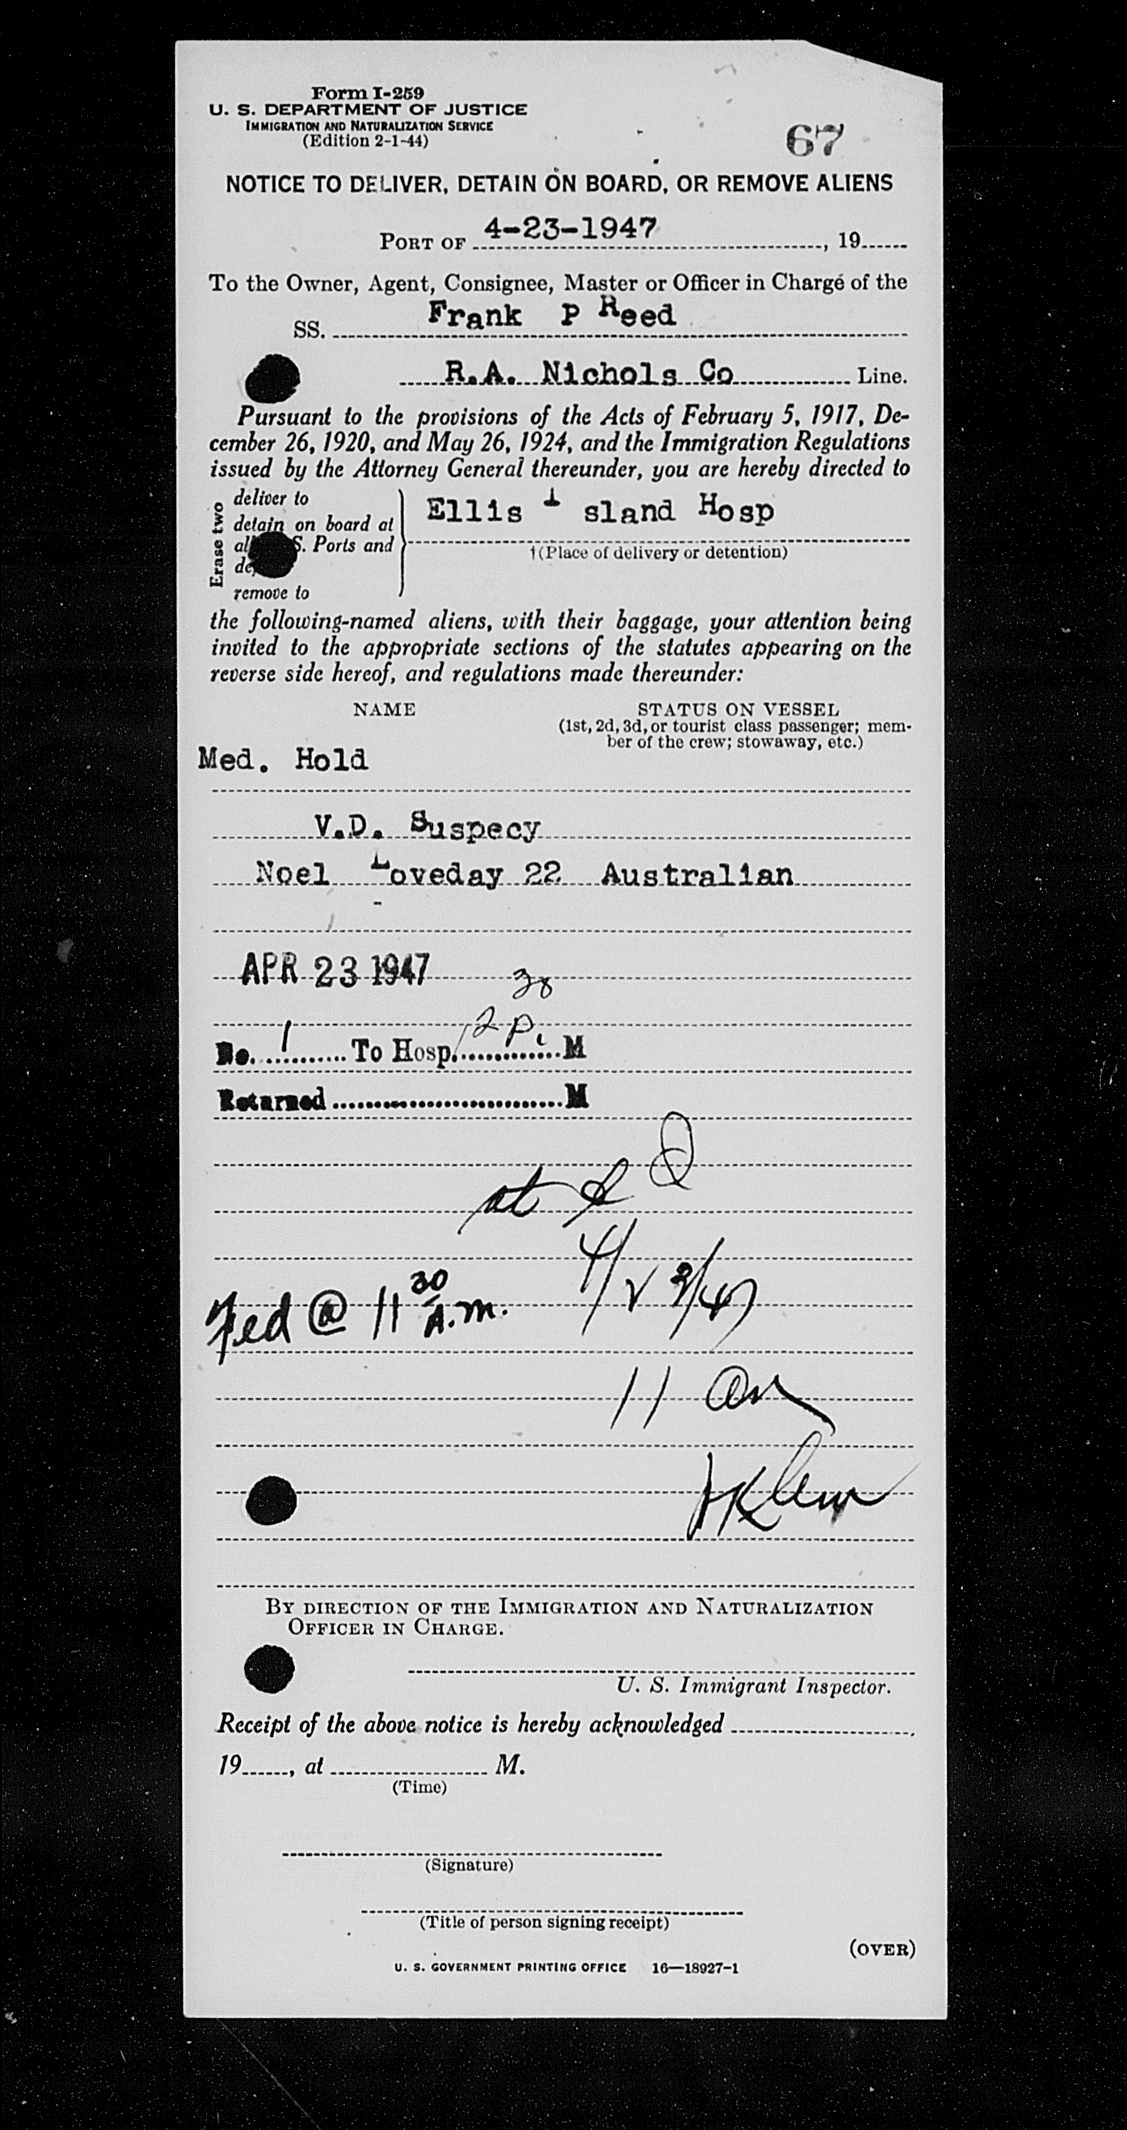 Form I-259
U. S. DEPARTMENT OF JUSTICE
IMMIGRATION AND NATURALIZATION SERVICE
(Edition 2-1-44)
67
NOTICE TO DELIVER, DETAIN ON BOARD, OR REMOVE ALIENS
PORT OF 4-23-1947, 19
To the Owner, Agent, Consignee, Master or Officer in Charge of the
SS. Frank P Reed
R.A. Nichols Co Line.
Pursuant to the provisions of the Acts of February 5, 1917, De-
cember 26, 1920, and May 26, 1924, and the Immigration Regulations
issued by the Attorney General thereunder, you are hereby directed to
Erase two
deliver to
detain on board at
S. Ports and
remove to
Ellis Island Hosp
†(Place of delivery or detention)
the following-named aliens, with their baggage, your attention being
invited to the appropriate sections of the statutes appearing on the
reverse side hereof, and regulations made thereunder:
NAME
STATUS ON VESSEL
(1st, 2d, 3d, or tourist class passenger; mem-
ber of the crew; stowaway, etc.)
Med. Hold
V.D. Suspecy
Noel Loveday 22 Australian
APR 23 1947
No. 1 To Hosp. 12 30 P. M
Returned M
at
4/23/47
Fed @ 11 30 A.M.
11 am
BY DIRECTION OF THE IMMIGRATION AND NATURALIZATION
OFFICER IN CHARGE.
U. S. Immigrant Inspector.
Receipt of the above notice is hereby acknowledged
19, at M.
(Time)
(Signature)
(Title of person signing receipt)
(OVER)
U. S. GOVERNMENT PRINTING OFFICE 16—18927-1